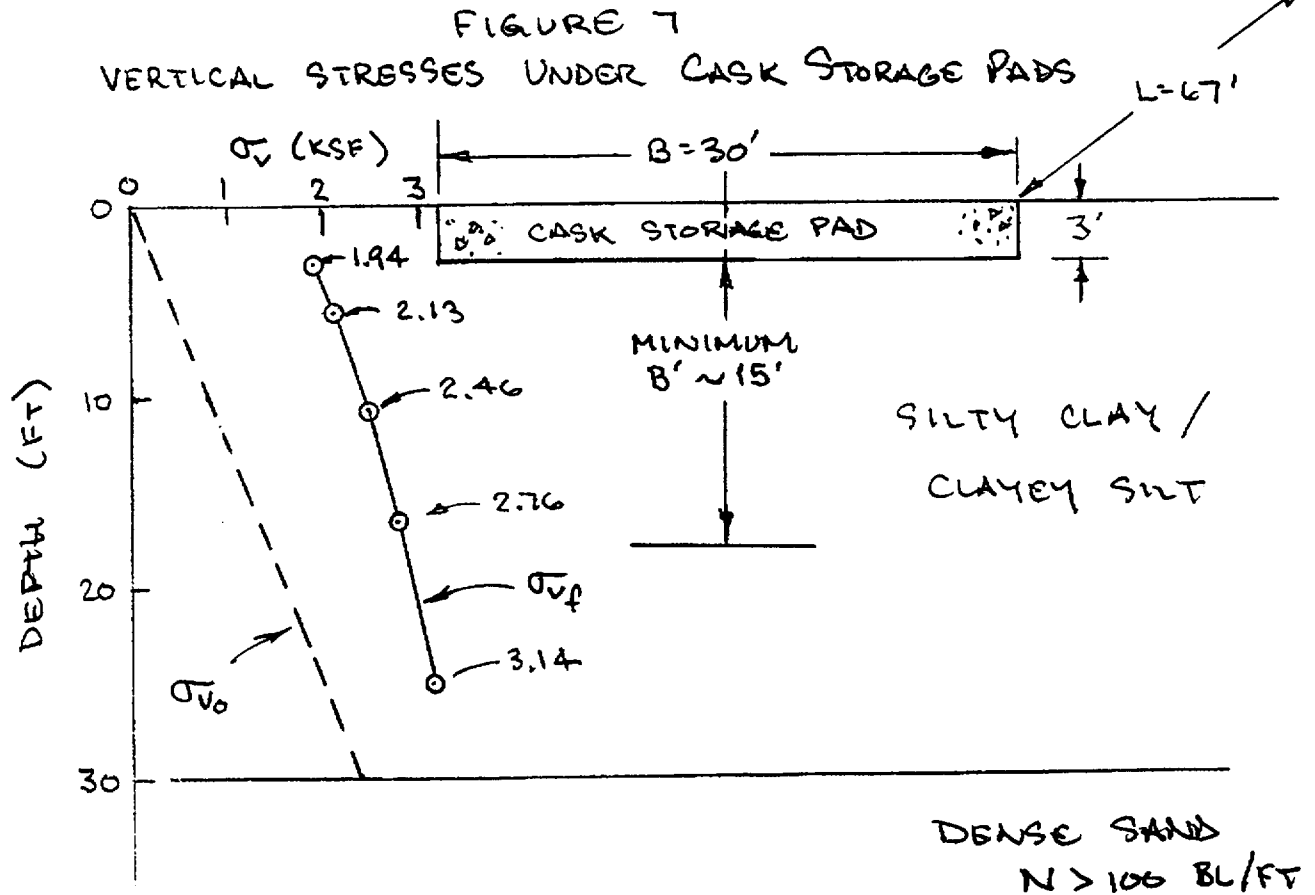 FIGURE 7
VERTICAL STRESSES UNDER CASK STORAGE PADS
L=67'
σv (KSF)
B=30'
0 1 2 3
0
CASK STORAGE PAD
3'
1.94
2.13
MINIMUM
B' ~ 15'
2.46
10
SILTY CLAY /
CLAYEY SILT
2.76
DEPTH (FT)
σvf
20
3.14
σvo
30
DENSE SAND
N > 100 BL/FT